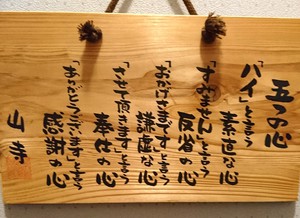 五つの心
「ハイ」と言う
素直な心
「すみません」と言う
反省の心
「おかげさまで」と言う
謙虚な心
「させて頂きます」と言う
奉仕の心
「ありがとうございます」と言う
感謝の心
山寺